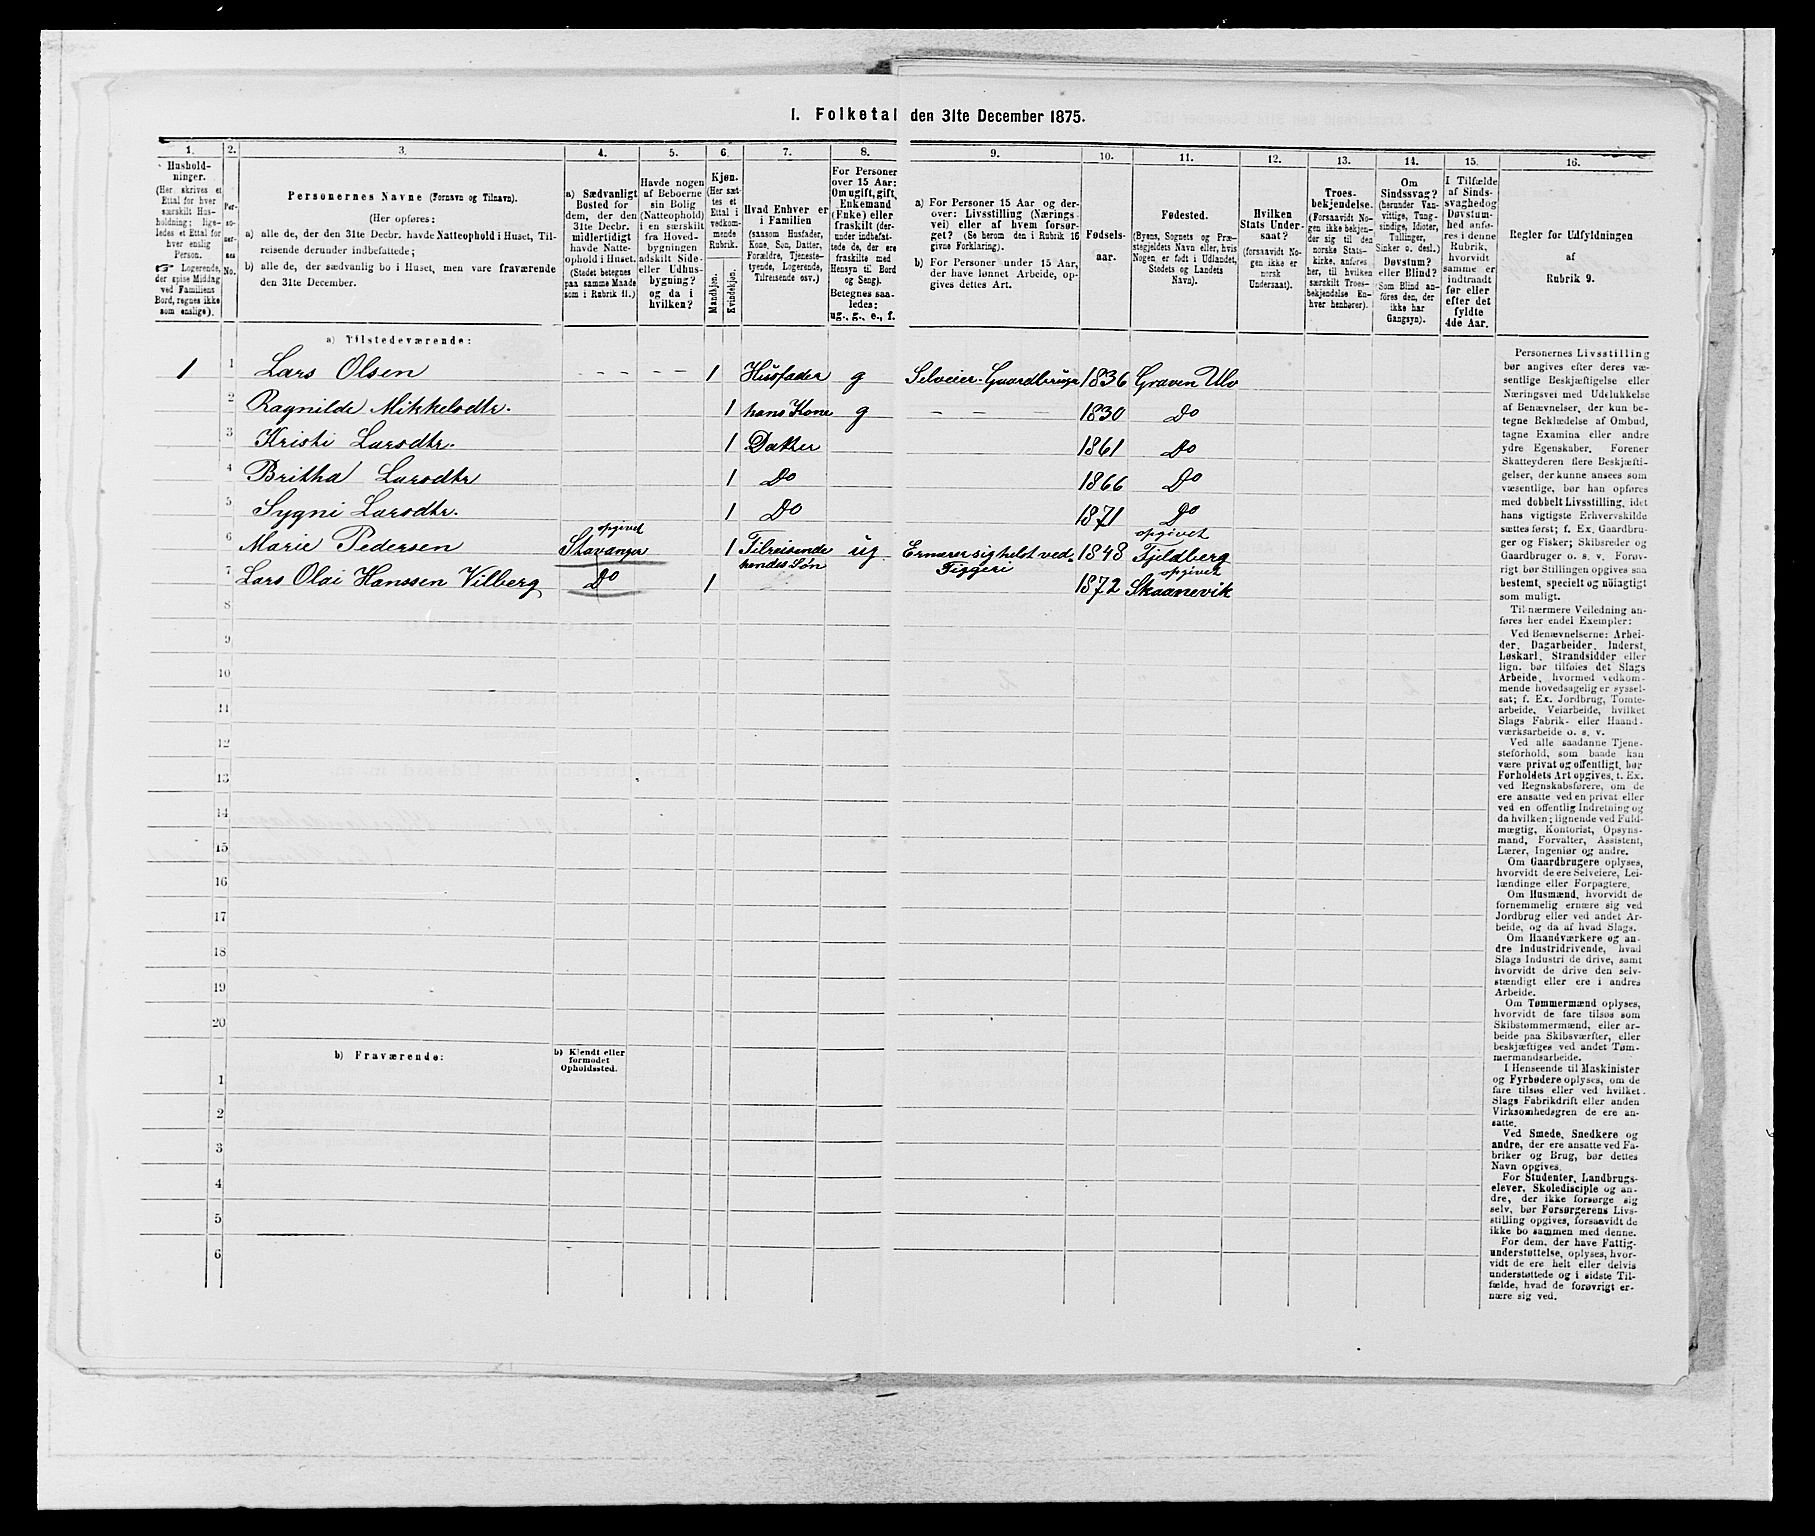 I. Folketal den 31te December 1875.
1. 2. 3. 4. 5. 6. 7. 8. 9. 10. 11. 12. 13. 14. 15. 16.
Hushold-
ninger.
(Her skrives et
Ettal for hver
særskilt Hus-
holdning; lige-
ledes et Ettal for
hver enslig
Person.
☞ Logerende,
der spise Middag
ved Familiens
Bord, regnes ikke
som enslige).
Per-
so-
ner-
nes
No.
Personernes Navne (Fornavn og Tilnavn).
(Her opføres:
a) alle de, der den 31te Decbr. havde Natteophold i Huset, Til-
reisende derunder indbefattede;
b) alle de, der sædvanlig bo i Huset, men vare fraværende
den 31te December.
a) Sædvanligt
Bosted for
dem, der den
31te Decbr.
midlertidigt
havde Natte-
ophold i Huset.
(Stedet betegnes
paa samme Maade
som i Rubrik 11.)
Havde nogen
af Beboerne
sin Bolig
(Natteophold)
i en særskilt
fra Hoved-
bygningen
adskilt Side-
eller Udhus-
bygning?
og da i
hvilken?
Kjøn.
(Her sæt-
tes et
Ettal i
vedkom-
mende
Rubrik.
Mandkjøn.
Kvindekjøn.
Hvad Enhver er
i Familien
(saasom Husfader,
Kone, Søn, Datter,
Forældre, Tjeneste-
tyende, Logerende,
Tilreisende osv.)
For Personer
over 15 Aar:
Om ugift, gift,
Enkemand
(Enke) eller
fraskilt (der-
under indbefat-
tede de, der ere
fraskilte med
Hensyn til Bord
og Seng).
Betegnes saa-
ledes:
ug., g., e., f.
a) For Personer 15 Aar og der-
over: Livsstilling (Nærings-
vei) eller af hvem forsør-
get? (Se herom den i Rubrik 16
givne Forklaring).
b) For Personer under 15 Aar,
der have lønnet Arbeide, op-
gives dettes Art.
Fødsels-
aar.
Fødested.
(Byens, Sognets og Præ-
stegjeldets Navn eller, hvis
Nogen er født i Udlandet,
Stedets og Landets
Navn).
Hvilken
Stats Under-
saat?
(forsaavidt No-
gen ikke er
norsk
Undersaat).
Troes-
bekjendelse.
(Forsaavidt No-
gen ikke bekjen-
der sig til den
norske Stats-
kirke, anføres
her, til hvilken
særskilt Troes-
bekjendelse En-
hver henhører).
Om
Sindssvag?
(herunder Van-
vittige, Tung-
sindige, Idioter,
Tullinger,
Sinker o. desl.)
Døvstum?
eller Blind?
(Som Blind an-
føres den, der
ikke har
Gangsyn).
I Tilfælde
af Sinds-
svaghed og
Døvstum-
hed anfø-
res i denne
Rubrik,
hvorvidt
samme er
indtraadt
før eller
efter det
fyldte
4de Aar.
Regler for Udfyldningen
af
Rubrik 9.
a) Tilstedeværende:
1 1 Lars Olsen - - - - - 1 Husfader g Selveier-Gaardbruger 1836 Graven Ulv
2 Ragnilde Mikkelsdtr. 1 hans Kone g - - - 1830 Do
3 Kristi Larsdtr. 1 Datter 1861 Do
4 Britha Larsdtr 1 Do 1866 Do
5 Sygni Larsdtr. 1 Do 1871 Do
6 Marie Pedersen opgivet Stavanger 1 Tilreisende ug Ernærer sig helst ved Tiggeri 1848 opgivet Fjeldberg
7 Lars Olai Hanssen Vilberg Do 1 hendes Søn 1872 opgivet Skaanevik
8
9
10
11
12
13
14
15
16
17
18
19
20
b) Fraværende:
b) Kjendt eller
formodet
Opholdssted.
1
2
3
4
5
6
Personernes Livsstilling
bør angives efter deres væ-
sentlige Beskjæftigelse eller
Næringsvei med Udelukkelse
af Benævnelser, der kun be-
tegne Beklædelse af Ombud,
tagne Examina eller andre
ydre Egenskaber. Forener
Skatteyderen flere Beskjæfti-
gelser, der kunne ansees som
væsentlige, bør han opføres
med dobbelt Livsstilling, idet
hans vigtigste Erhvervskilde
sættes først; f. Ex. Gaardbru-
ger og Fisker; Skibsreder og
Gaardbruger o. s. v. Forøv-
rigt bør Stillingen opgives saa
bestemt, specielt og nöiagtigt
som muligt.
Til nærmere Veiledning an-
føres her endel Exempler:
Ved Benævnelserne: Arbei-
der, Dagarbeider, Inderst,
Løskarl, Strandsidder eller
lign. bør tilføies det Slags
Arbeide, hvormed vedkom-
mende hovedsagelig er syssel-
sat; f. Ex. Jordbrug, Tomte-
arbeide, Veiarbeide, hvilket
Slags Fabrik- eller Haand-
værksarbeide o. s. v.
Ved alle saadanne Tjene-
steforhold, som baade kan
være privat og offentligt, bør
Forholdets Art opgives, t. Ex.
ved Regnskabsførere, om de
ere ansatte ved en privat eller
ved en offentlig Indretning og
da hvilken; lignende ved Fuld-
mægtig, Kontorist, Opsyns-
mand, Forvalter, Assistent,
Lærer, Ingeniør og andre.
Om Gaardbrugere oplyses,
hvorvidt de ere Selveiere, Lei-
lændinge eller Forpagtere.
Om Husmænd, hvorvidt de
fornemmelig ernære sig ved
Jordbrug eller ved andet Ar-
beide, og da af hvad Slags.
Om Haandværkere og an-
dre Industridrivende, hvad
Slags Industri de drive, samt
hvorvidt de drive den selv-
stændigt eller ere i andres
Arbeide.
Om Tømmermænd oplyses,
hvorvidt de fare tilsøs som
Skibstømmermænd, eller ar-
beide paa Skibsværfter, eller
beskjæftiges ved andet Tøm-
mermandsarbeide.
I Henseende til Maskinister
og Fyrbødere oplyses, om de
fare tilsøs eller ved hvilket
Slags Fabrikdrift eller anden
Virksomhedsgren de ere an-
satte.
Ved Smede, Snedkere og
andre, der ere ansatte ved Fa-
briker og Brug, bør dettes
Navn opgives.
For Studenter, Landbrugs-
elever, Skoledisciple og an-
dre, der ikke forsørge sig
selv, bør Forsørgerens Livs-
stilling opgives, forsaavidt de
ikke bo sammen med denne.
For dem, der have Fattig-
understøttelse, oplyses, hvor-
vidt de ere helt eller delvis
understøttede og i sidste Til-
fælde, hvad de forøvrigt er-
nære sig ved.